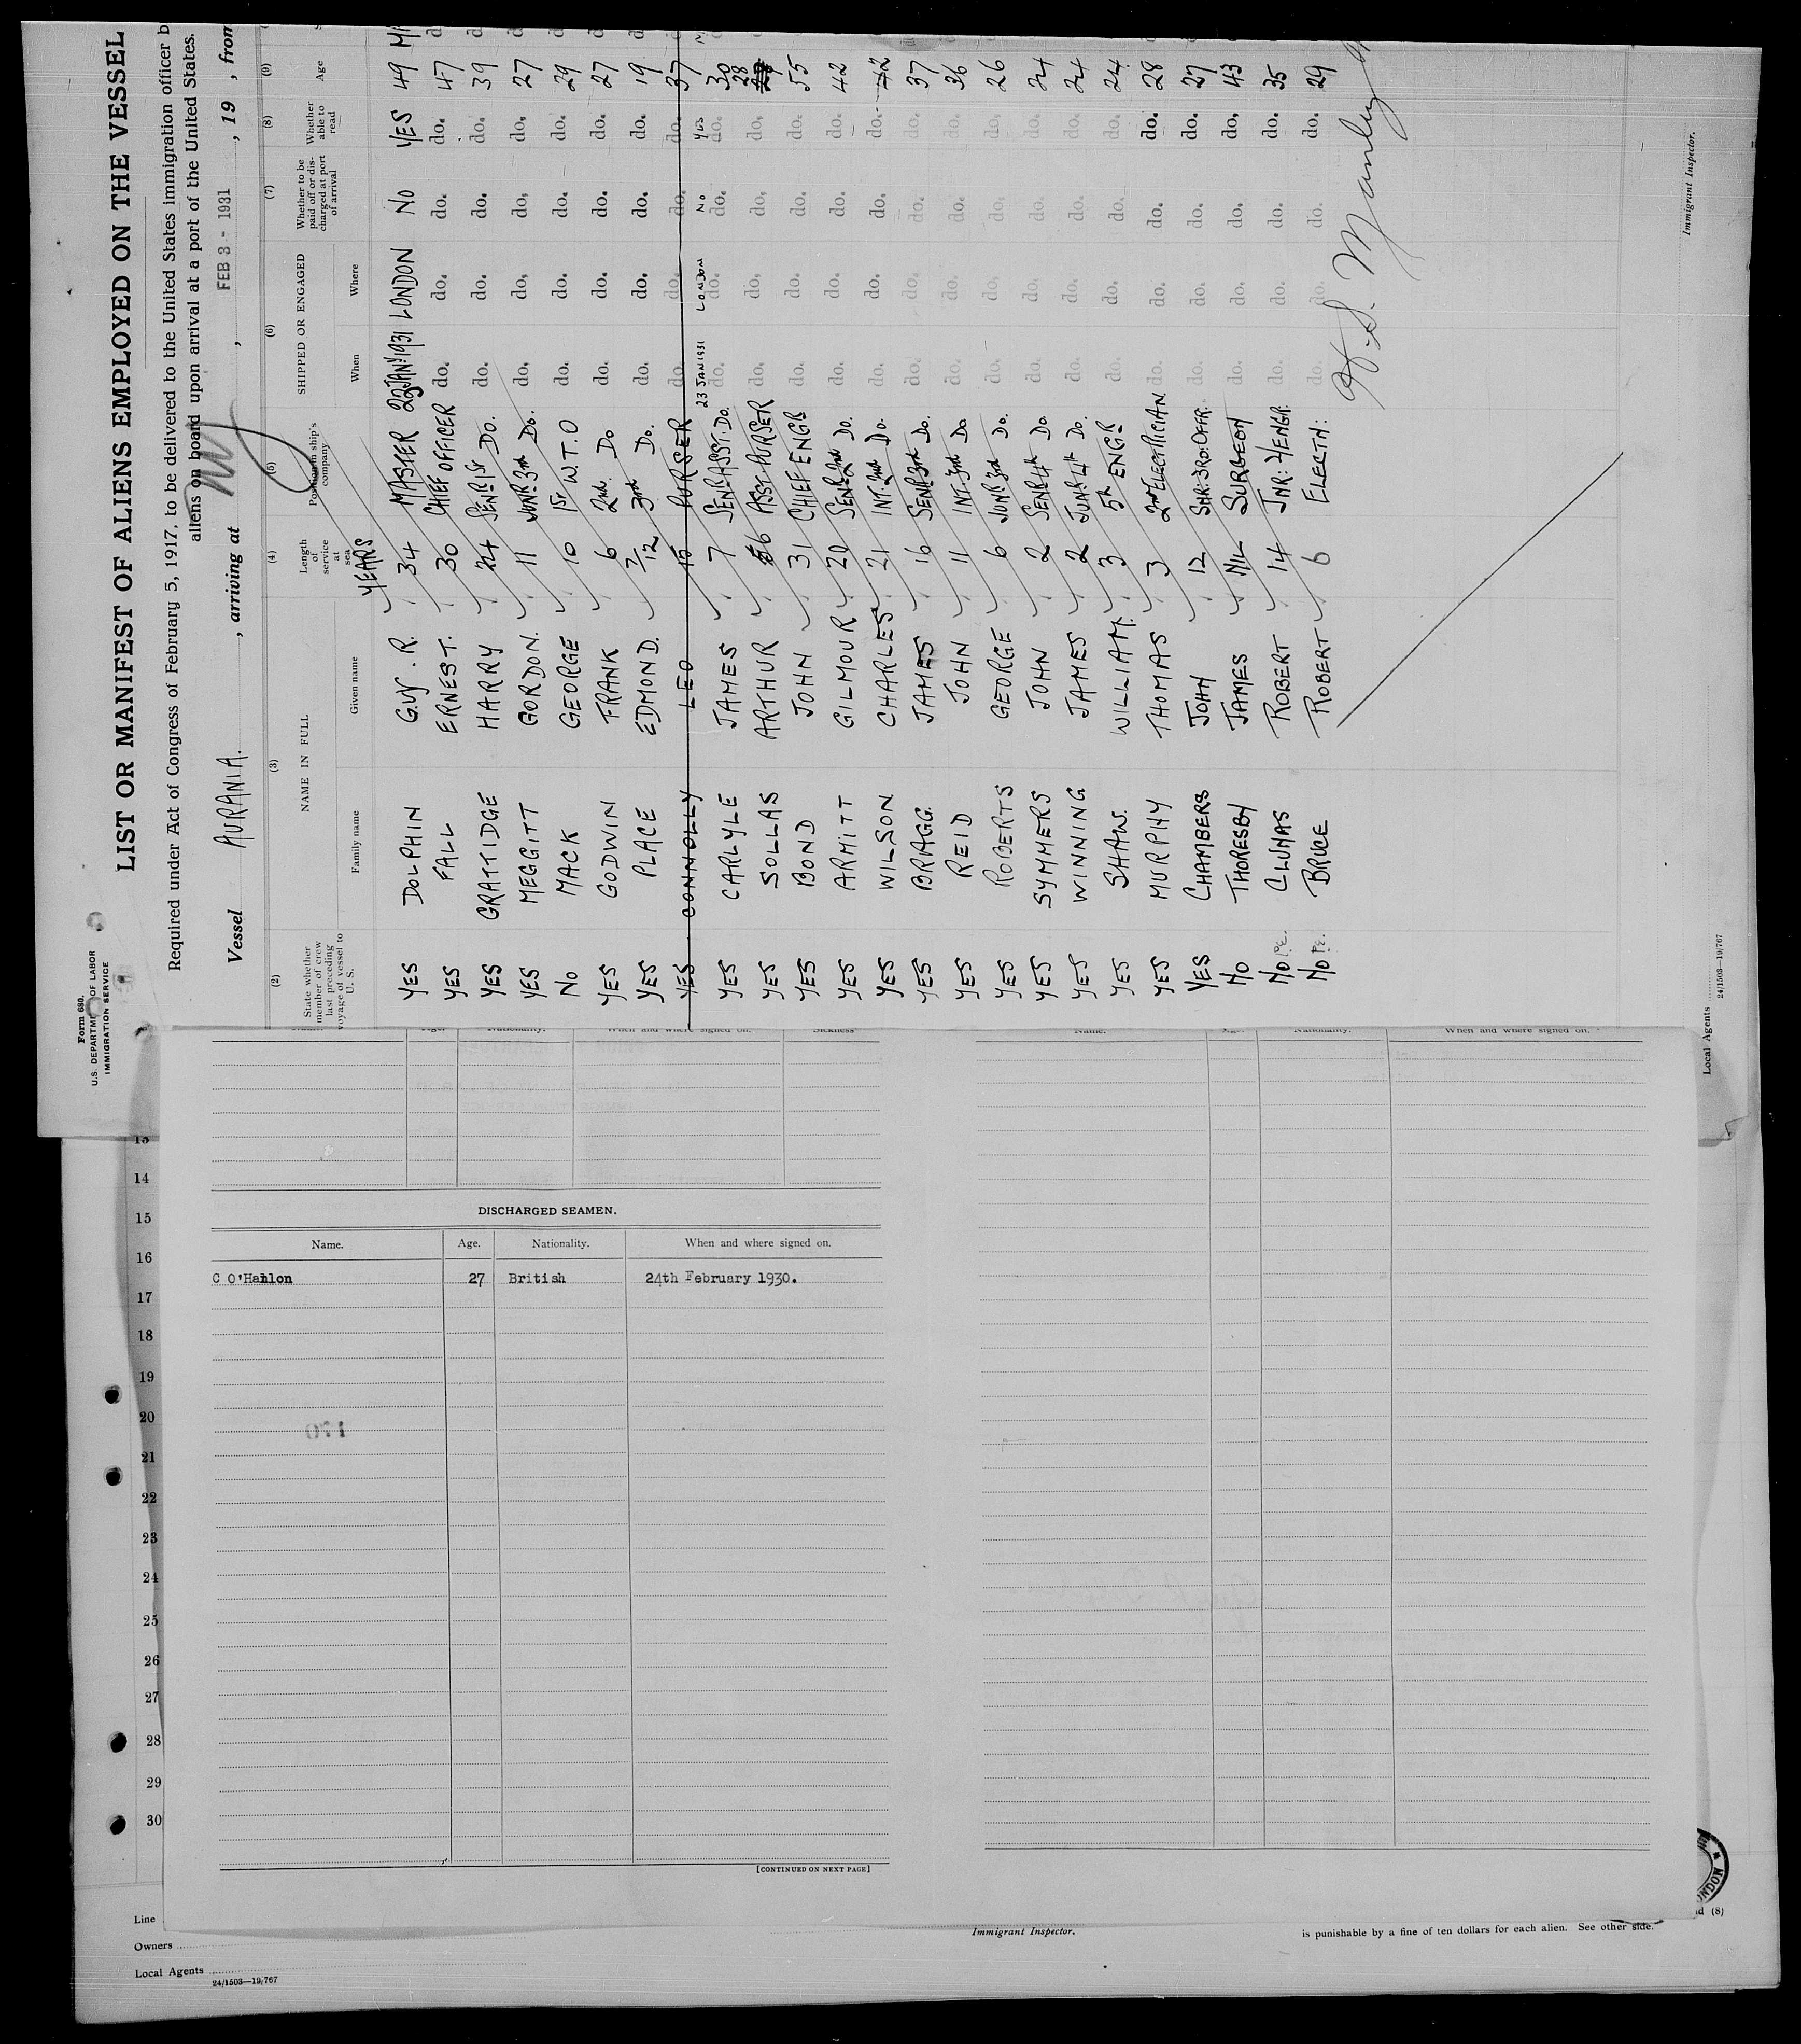 Form 680.
U.S. DEPARTMENT OF LABOR
IMMIGRATION SERVICE
LIST OR MANIFEST OF ALIENS EMPLOYED ON THE VESSEL
Required under Act of Congress of February 5, 1917, to be delivered to the United States immigration officer b
aliens on board upon arrival at a port of the United States.
Vessel AURANIA. , arriving at , FEB 3 - 1931 , 19 , from
(2) (3) (4) (5) (6) (7) (8) (9)
State whether member of crew last preceding voyage of vessel to U. S. NAME IN FULL Family name Given name Length of service at sea Position in ship's company SHIPPED OR ENGAGED When Where Whether to be paid off or discharged at port of arrival Whether able to read Age
YEARS
YES DOLPHIN GUY . R. 34 MASTER 22 JANY 1931 LONDON NO YES 49
YES FALL ERNEST. 30 CHIEF OFFICER do. do. do. do. 47
YES GRATTIDGE HARRY 24 SENR 1ST DO. do. do. do. do. 39
YES MEGGITT GORDON. 11 JUNR 3rd Do. do. do. do. do. 27
No MACK GEORGE 10 1ST W.T.O do. do. do. do. 29
YES GODWIN FRANK 6 2nd. Do do. do. do. do. 27
YES PLACE EDMOND. 7/12 3rd Do. do. do. do. do. 19
YES CONNOLLY LEO 15 PURSER do. do. do. do. 37
23 JAN 1931 LONDON NO YES
YES CARLYLE JAMES 7 SENR ASST. DO. do. do. do. do. 30
YES SOLLAS ARTHUR 6 ASST PURSER do. do. do. do. 28
YES BOND JOHN 31 CHIEF ENGR do. do. do. do. 55
YES ARMITT GILMOUR 20 SENR 2nd Do. do. do. do. do. 42
YES WILSON CHARLES 21 INT. 2nd Do. do. do. do. do. 42
YES BRAGG. JAMES 16 SENR 3rd Do. do. do. do. do. 37
YES REID JOHN 11 INT. 3rd Do do. do. do. do. 36
YES ROBERTS GEORGE 6 JUNR 3rd Do. do. do. do. do. 26
YES SYMMERS JOHN 2 SENR 4th Do do. do. do. do. 24
YES WINNING JAMES 2 JUNR 4th Do. do. do. do. do. 24
YES SHAW. WILLIAM. 3 5th ENGR do. do. do. do. 24
YES MURPHY THOMAS 3 2nd ELECTRICIAN do. do. do. do. 28
YES CHAMBERS JOHN 12 SNR: 3RD: OFFR. do. do. do. do. 27
No THORESBY JAMES NIL SURGEON do. do. do. do. 43
No P.E. CLUNAS ROBERT 14 JNR: 4 ENGR. do. do. do. do. 35
No P.E. BRUCE ROBERT 6 ELECTN: do. do. do. do. 29
Immigrant Inspector.
Local Agents
24/1503—19/767
Age. Nationality. When and where signed on. Sickness
Name. Age. Nationality. When and where signed on.
13
14
15
16
17
18
19
20
21
22
23
24
25
26
27
28
29
30
DISCHARGED SEAMEN.
Name. Age. Nationality. When and where signed on.
C O'Hanlon 27 British 24th February 1930.
[CONTINUED ON NEXT PAGE]
Line
Owners
Local Agents
24/1503—19/767
Immigrant Inspector.
d (8)
is punishable by a fine of ten dollars for each alien. See other side.